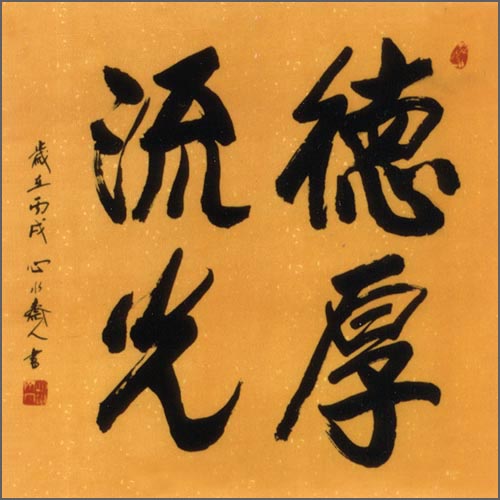 德厚
流光
歲在丙戌 心水齋人書